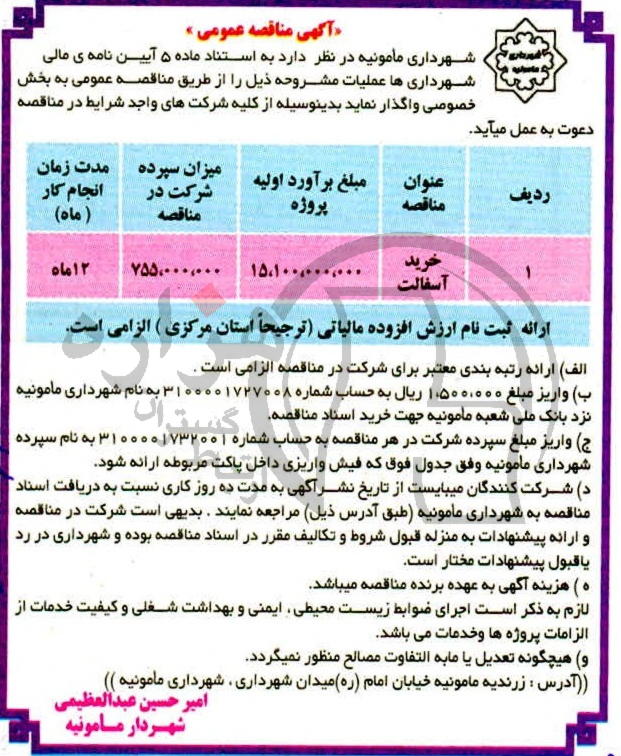 «آگهی مناقصه عمومی»
شهرداری مأمونیه
شهرداری مأمونیه در نظر دارد به استناد ماده ۵ آیین نامه ی مالی
شهرداری ها عملیات مشروحه ذیل را از طریق مناقصه عمومی به بخش
خصوصی واگذار نماید بدینوسیله از کلیه شرکت های واجد شرایط در مناقصه
دعوت به عمل میآید.
ردیف
عنوان مناقصه
مبلغ برآورد اولیه پروژه
میزان سپرده شرکت در مناقصه
مدت زمان انجام کار (ماه)
۱
خرید آسفالت
۱۵,۱۰۰,۰۰۰,۰۰۰
۷۵۵,۰۰۰,۰۰۰
۱۲ماه
ارائه ثبت نام ارزش افزوده مالیاتی (ترجیحاً استان مرکزی) الزامی است.
الف) ارائه رتبه بندی معتبر برای شرکت در مناقصه الزامی است.
ب) واریز مبلغ ۱,۵۰۰,۰۰۰ ریال به حساب شماره ۳۱۰۰۰۰۱۷۲۷۰۰۸ به نام شهرداری مأمونیه
نزد بانک ملی شعبه مأمونیه جهت خرید اسناد مناقصه.
ج) واریز مبلغ سپرده شرکت در هر مناقصه به حساب شماره ۳۱۰۰۰۰۱۷۳۲۰۰۱ به نام سپرده
شهرداری مأمونیه وفق جدول فوق که فیش واریزی داخل پاکت مربوطه ارائه شود.
د) شرکت کنندگان میبایست از تاریخ نشرآگهی به مدت ده روز کاری نسبت به دریافت اسناد
مناقصه به شهرداری مأمونیه (طبق آدرس ذیل) مراجعه نمایند. بدیهی است شرکت در مناقصه
و ارائه پیشنهادات به منزله قبول شروط و تکالیف مقرر در اسناد مناقصه بوده و شهرداری در رد
یاقبول پیشنهادات مختار است.
ه) هزینه آگهی به عهده برنده مناقصه میباشد.
لازم به ذکر است اجرای ضوابط زیست محیطی، ایمنی و بهداشت شغلی و کیفیت خدمات از
الزامات پروژه ها وخدمات می باشد.
و) هیچگونه تعدیل یا مابه التفاوت مصالح منظور نمیگردد.
((آدرس: زرندیه مامونیه خیابان امام (ره)میدان شهرداری، شهرداری مأمونیه))
امیر حسین عبدالعظیمی
شهردار مـامونیه
هزاره
گسترش